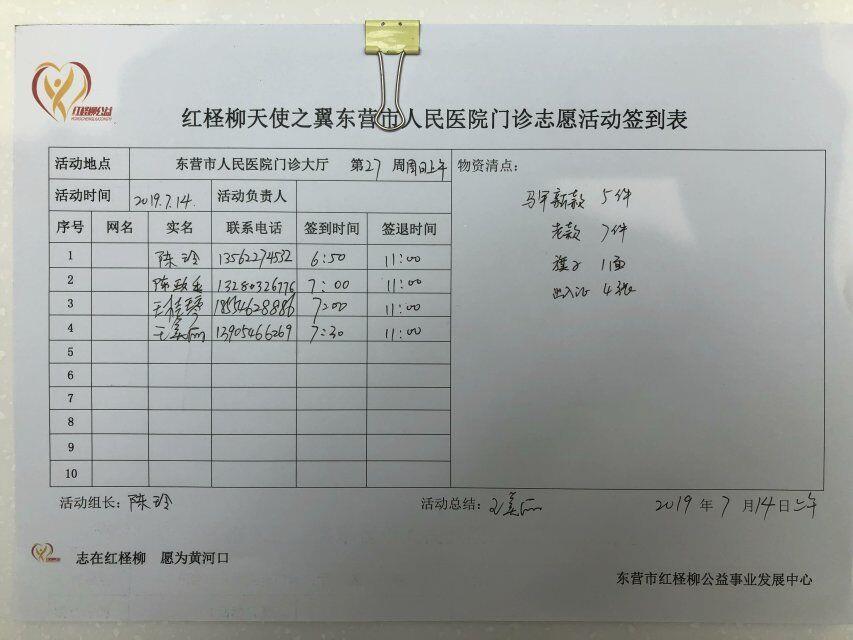 红柽柳公益
红柽柳天使之翼东营市人民医院门诊志愿活动签到表
活动地点 东营市人民医院门诊大厅 第27周周日上午 物资清点：
活动时间 2019.7.14. 活动负责人
马甲新款 5件
序号 网名 实名 联系电话 签到时间 签退时间
老款 7件
1 陈玲 13562274532 6:50 11:00
旗子 1面
2 陈政 13280326776 7:00 11:00
出入证 4张
3 王 18554628886 7:00 11:00
4 王美丽 13905466269 7:30 11:00
5
6
7
8
9
10
活动组长：陈玲 活动总结：王美丽 2019年7月14日上午
志在红柽柳 愿为黄河口
东营市红柽柳公益事业发展中心